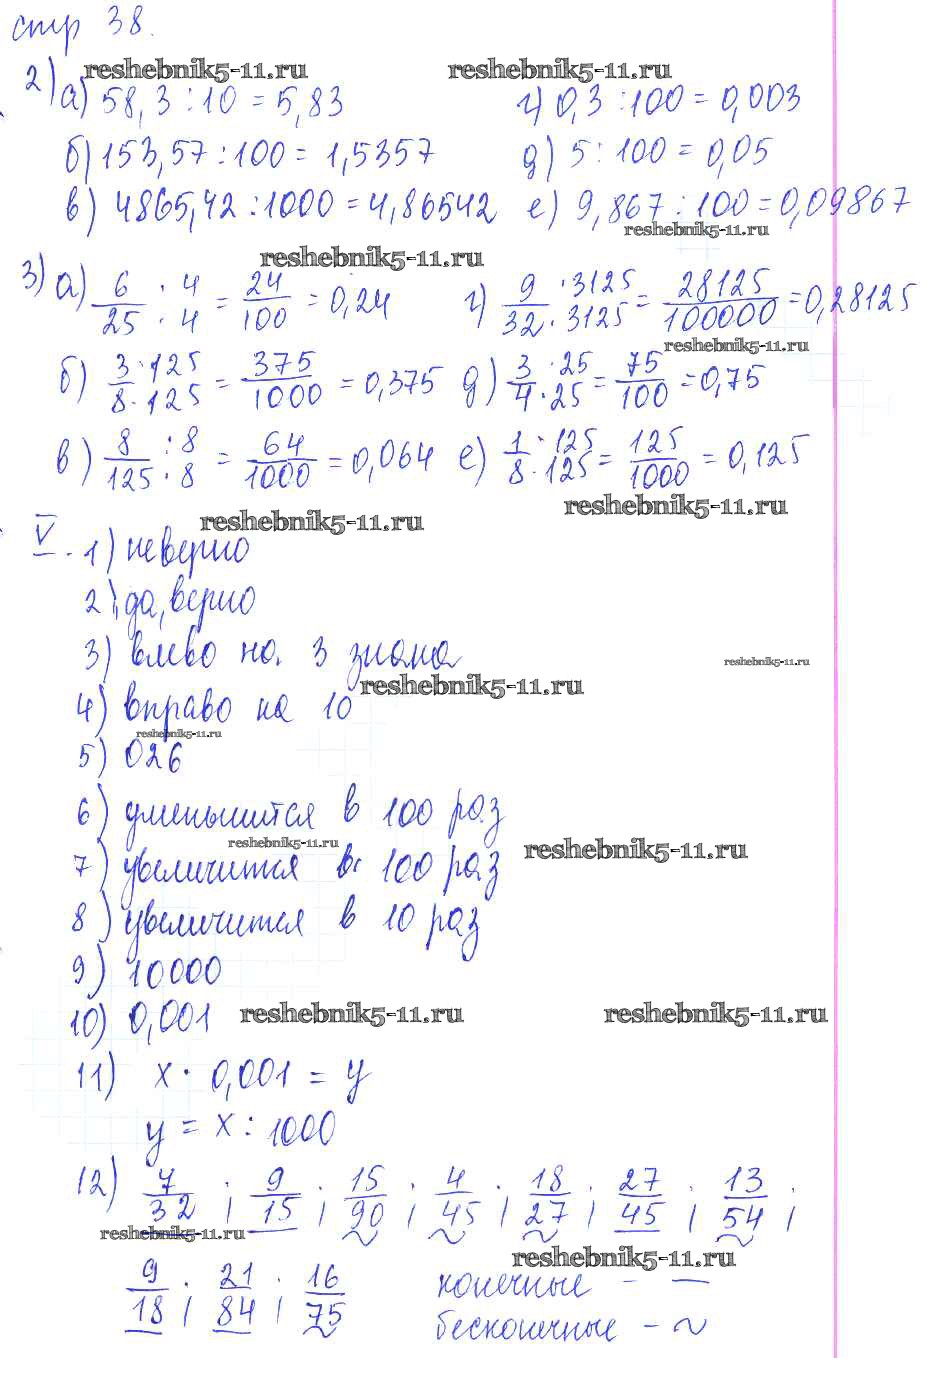 стр 38.
reshebnik5-11.ru reshebnik5-11.ru
2) а) 58,3 : 10 = 5,83 г) 0,3 : 100 = 0,003
б) 153,57 : 100 = 1,5357 д) 5 : 100 = 0,05
в) 4865,42 : 1000 = 4,86542 е) 9,867 : 100 = 0,09867
reshebnik5-11.ru
reshebnik5-11.ru
3) а) 6/25 · 4/4 = 24/100 = 0,24 г) 9/32 · 3125/3125 = 28125/100000 = 0,28125
reshebnik5-11.ru
б) 3/8 · 125/125 = 375/1000 = 0,375 д) 3/4 · 25/25 = 75/100 = 0,75
в) 8/125 · 8/8 = 64/1000 = 0,064 е) 1/8 · 125/125 = 125/1000 = 0,125
reshebnik5-11.ru
reshebnik5-11.ru
V. 1) неверно
2) да, верно
3) влево на 3 знака
reshebnik5-11.ru
reshebnik5-11.ru
4) вправо на 10
reshebnik5-11.ru
5) 026
6) уменьшится в 100 раз
reshebnik5-11.ru
reshebnik5-11.ru
7) увеличится в 100 раз
8) увеличится в 10 раз
9) 10000
10) 0,001 reshebnik5-11.ru reshebnik5-11.ru
11) х · 0,001 = у
у = х : 1000
12) 7/32 ; 9/15 ; 15/90 ; 4/45 ; 18/27 ; 27/45 ; 13/54 ;
reshebnik5-11.ru
reshebnik5-11.ru
9/18 ; 21/84 ; 16/75 конечные - —
бесконечные - ~